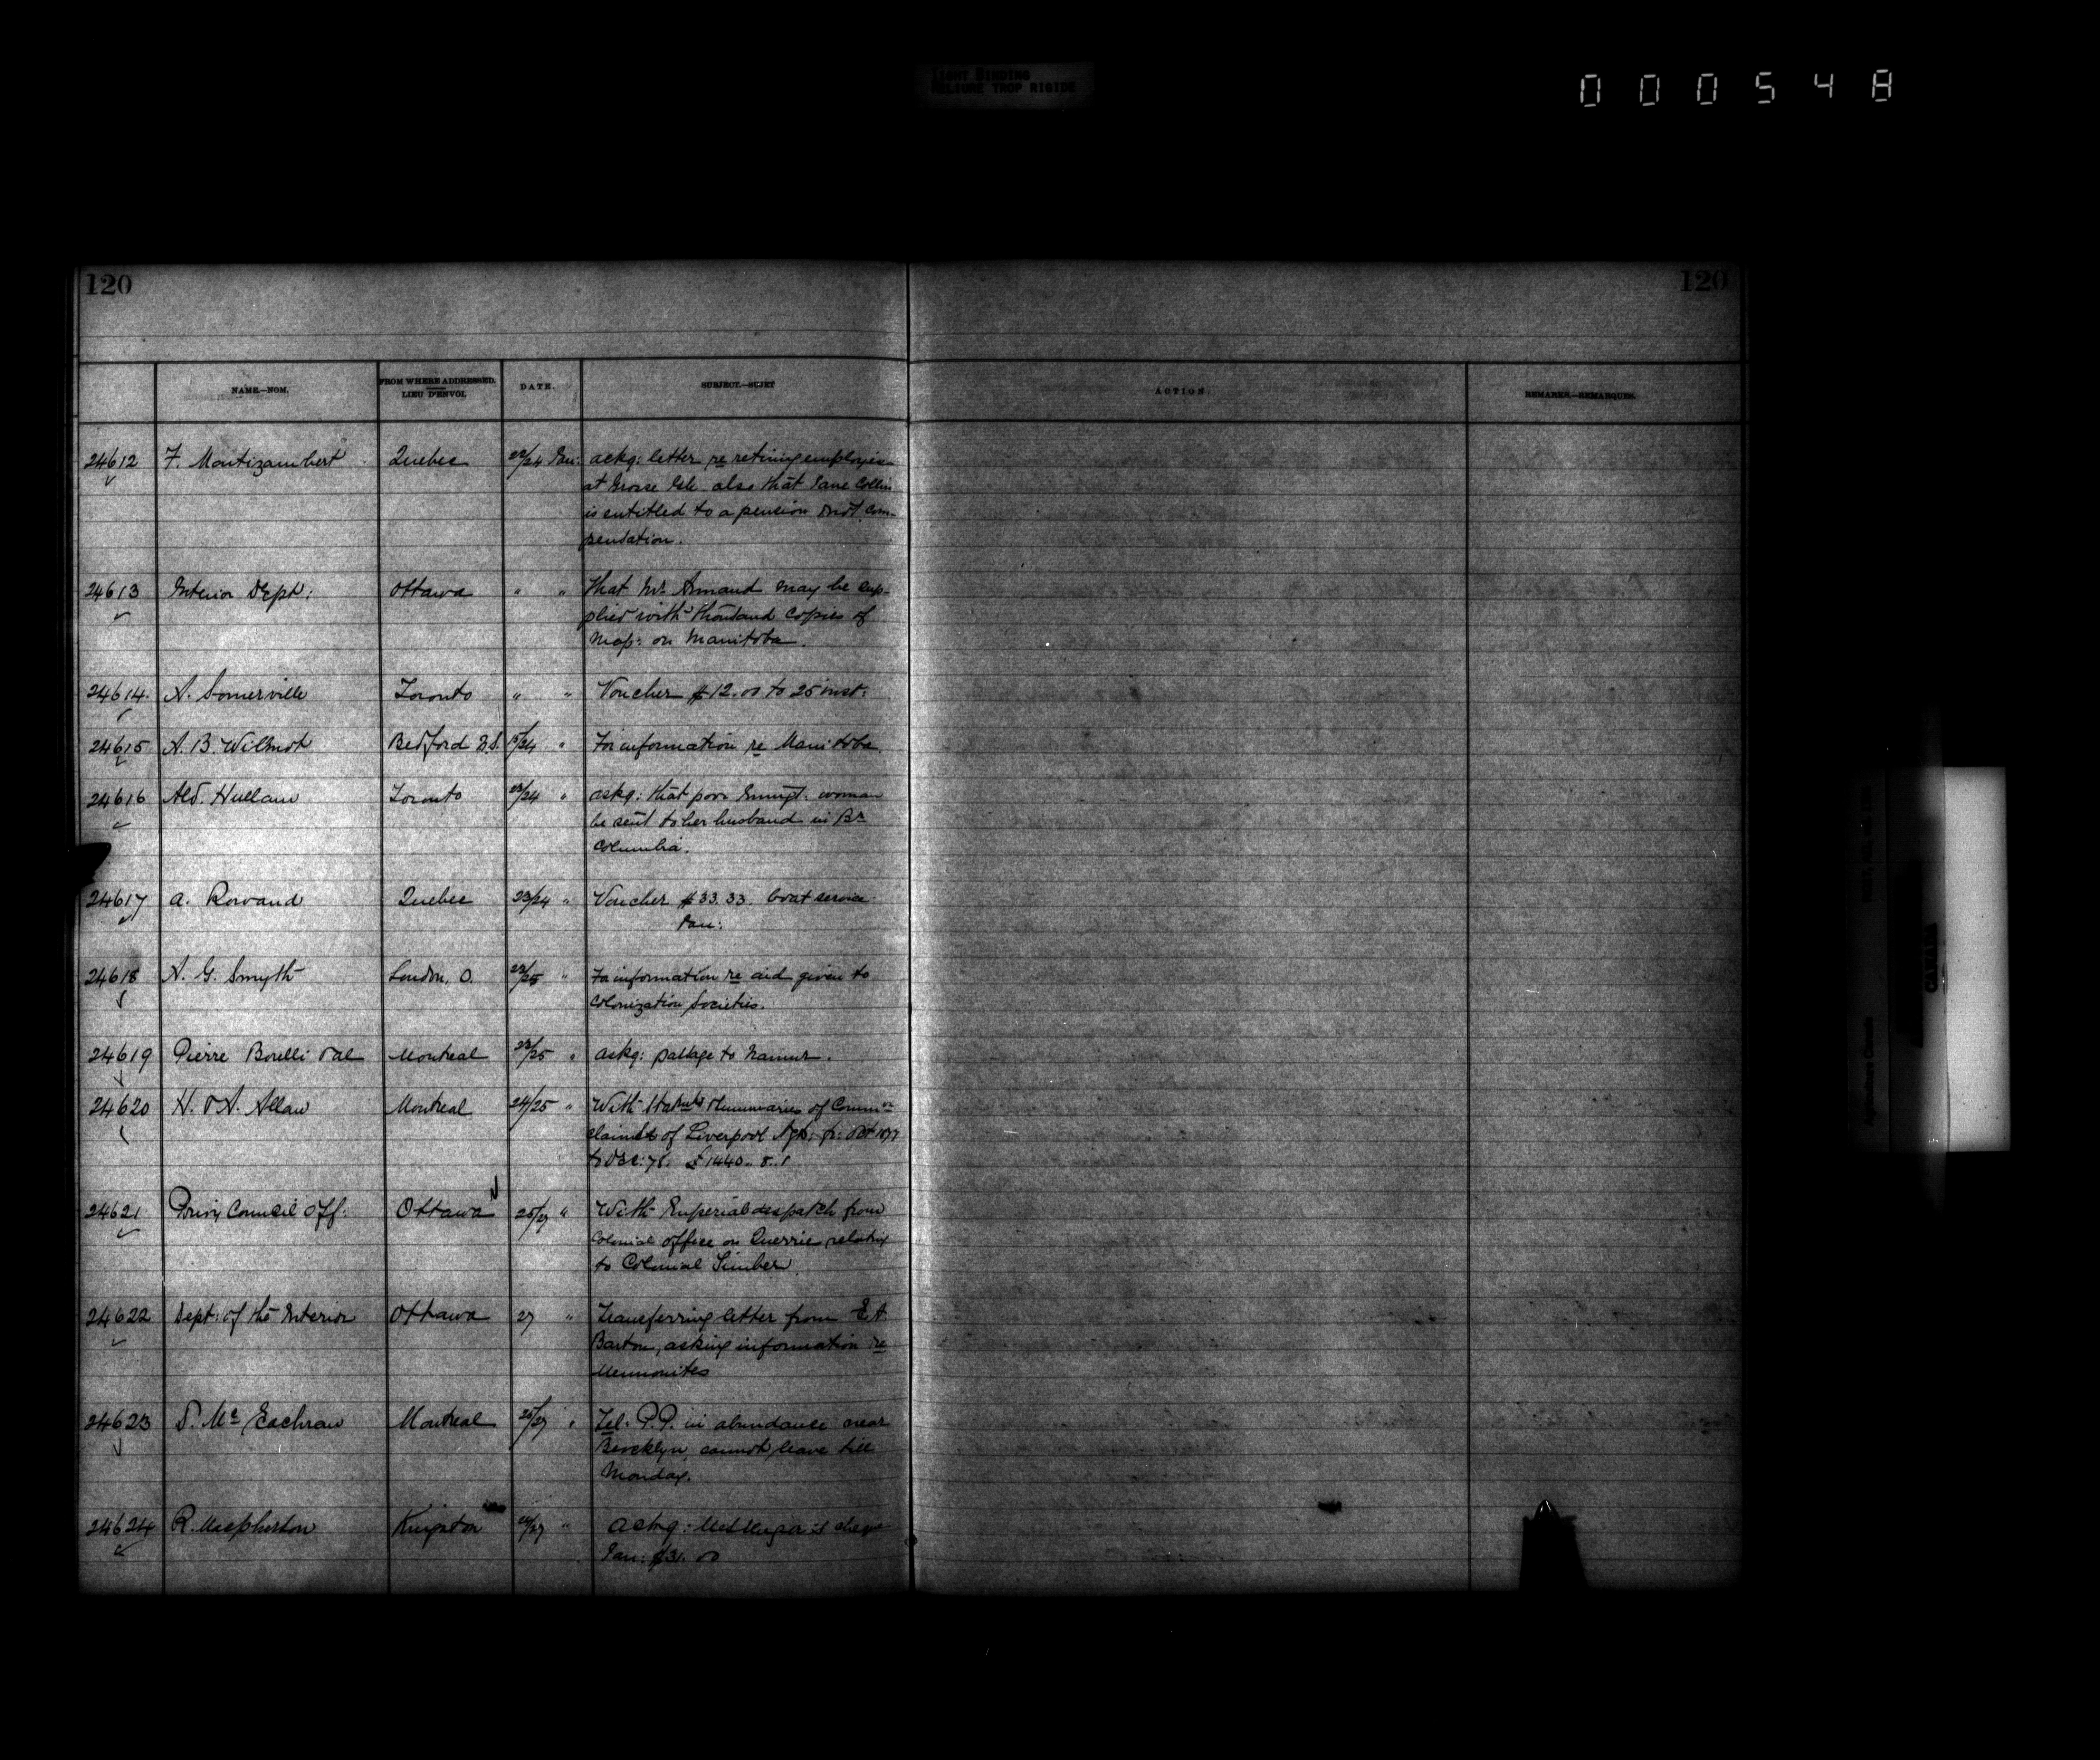 TIGHT BINDING
RELIURE TROP RIGIDE
000548
120
120
NAME.—NOM.
FROM WHERE ADDRESSED.
LIEU D'ENVOI.
DATE.
SUBJECT.—SUJET
ACTION.
REMARKS.—REMARQUES.
24612 F. Montizambert Quebec 22/24 Jan: ackg: letter re retiring employees
at Grosse Isle also that Jane Collins
is entitled to a pension & not com-
pensation.
24613 Interior Dept: Ottawa " " That Mr. Armand may be sup-
plied with thousand copies of
Map: on Manitoba.
24614 A. Somerville Toronto " " Voucher $12.00 to 25 inst:
24615 A. B. Wilmot Bedford N.S. /24 " For information re Manitoba.
24616 Ald. Hallam Toronto 23/24 " askg: that poor Emigt: woman
be sent to her husband in Br
Columbia.
24617 A. Rowand Quebec 23/24 " Voucher $33.33. boat service
Jan:
24618 A. G. Smyth London, O. 23/25 " For information re aid given to
Colonization Societies.
24619 Pierre Borelli & al Montreal 23/25 " askg: passage to Namur.
24620 H. & A. Allan Montreal 24/25 " With Statmts & Summaries of Common
claimed of Liverpool Agts. fr: Oct 1877
to Dec: 78. £1440..8..1
24621 Privy Council Off: Ottawa 25/27 " With Imperial despatch from
Colonial office on Querries relating
to Colonial Timber.
24622 Dept: of the Interior Ottawa 27 " Transferring letter from E A
Barton, asking information re
Mennonites
24623 D. Mc Eachran Montreal 25/27 " Tel: P.P. in abundance near
Brooklyn, cannot leave till
Monday.
24624 R. Macpherson Kingston /27 " ackng: Messenger's cheque
Jan: $31.00